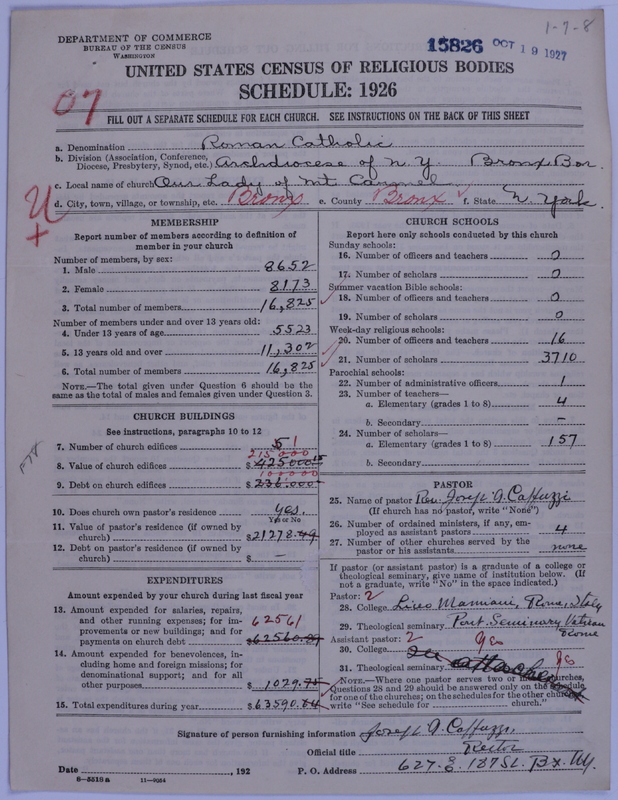 1-7-8
DEPARTMENT OF COMMERCE
BUREAU OF THE CENSUS
WASHINGTON
15826 OCT 19 1927
UNITED STATES CENSUS OF RELIGIOUS BODIES
SCHEDULE: 1926
07
FILL OUT A SEPARATE SCHEDULE FOR EACH CHURCH. SEE INSTRUCTIONS ON THE BACK OF THIS SHEET
a. Denomination Roman Catholic
b. Division (Association, Conference, Diocese, Presbytery, Synod, etc.) Archdiocese of N.Y. Bronx Bor.
c. Local name of church Our Lady of Mt Carmel
d. City, town, village, or township, etc. Bronx e. County Bronx f. State N. York.
U
+
MEMBERSHIP
Report number of members according to definition of
member in your church
Number of members, by sex:
1. Male 8652
2. Female 8173
3. Total number of members 16,825
Number of members under and over 13 years old:
4. Under 13 years of age 5523
5. 13 years old and over 11,302
6. Total number of members 16,825
NOTE.—The total given under Question 6 should be
same as the total of males and females given under Question 3.
CHURCH BUILDINGS
See instructions, paragraphs 10 to 12
7. Number of church edifices 5 1
215000
8. Value of church edifices $425000
100000
9. Debt on church edifices $236.000
10. Does church own pastor's residence yes.
Yes or No
11. Value of pastor's residence (if owned by
church) $21278.49
12. Debt on pastor's residence (if owned by
church) $ —
EXPENDITURES
Amount expended by your church during last fiscal year
13. Amount expended for salaries, repairs,
and other running expenses; for im- 62561
provements or new buildings; and for
payments on church debt $62560.
14. Amount expended for benevolences, in-
cluding home and foreign missions; for
denominational support; and for all
other purposes $1029.75
15. Total expenditures during year $63590.64
CHURCH SCHOOLS
Report here only schools conducted by this church
Sunday schools:
16. Number of officers and teachers 0
17. Number of scholars 0
Summer vacation Bible schools:
18. Number of officers and teachers 0
19. Number of scholars 0
Week-day religious schools:
20. Number of officers and teachers 16
21. Number of scholars 3710
Parochial schools:
22. Number of administrative officers 1
23. Number of teachers—
a. Elementary (grades 1 to 8) 4
b. Secondary –
24. Number of scholars—
a. Elementary (grades 1 to 8) 157
b. Secondary
PASTOR
25. Name of pastor Rev. Joseph A. Caffuzzi
(If church has no pastor, write "None")
26. Number of ordained ministers, if any, em-
ployed as assistant pastors 4
27. Number of other churches served by the
pastor or his assistants none
If pastor (or assistant pastor) is a graduate of a college or
theological seminary, give name of institution below. (If
not a graduate, write "No" in the space indicated.)
Pastor: 2
28. College Liceo Mamiani, Rome, Italy
29. Theological seminary Pont. Seminary Vatican
Rome
Assistant pastor: 2
30. College
31. Theological seminary
NOTE.—Where one pastor serves two or more churches,
Questions 28 and 29 should be answered only on the schedule
for one of the churches; on the schedules for the other churches
write "See schedule for church."
Signature of person furnishing information Joseph A. Caffuzzi.
Official title Rector
Date , 192 P. O. Address 627 E. 187 St. Bx. NY.
8-5518a 11-9064